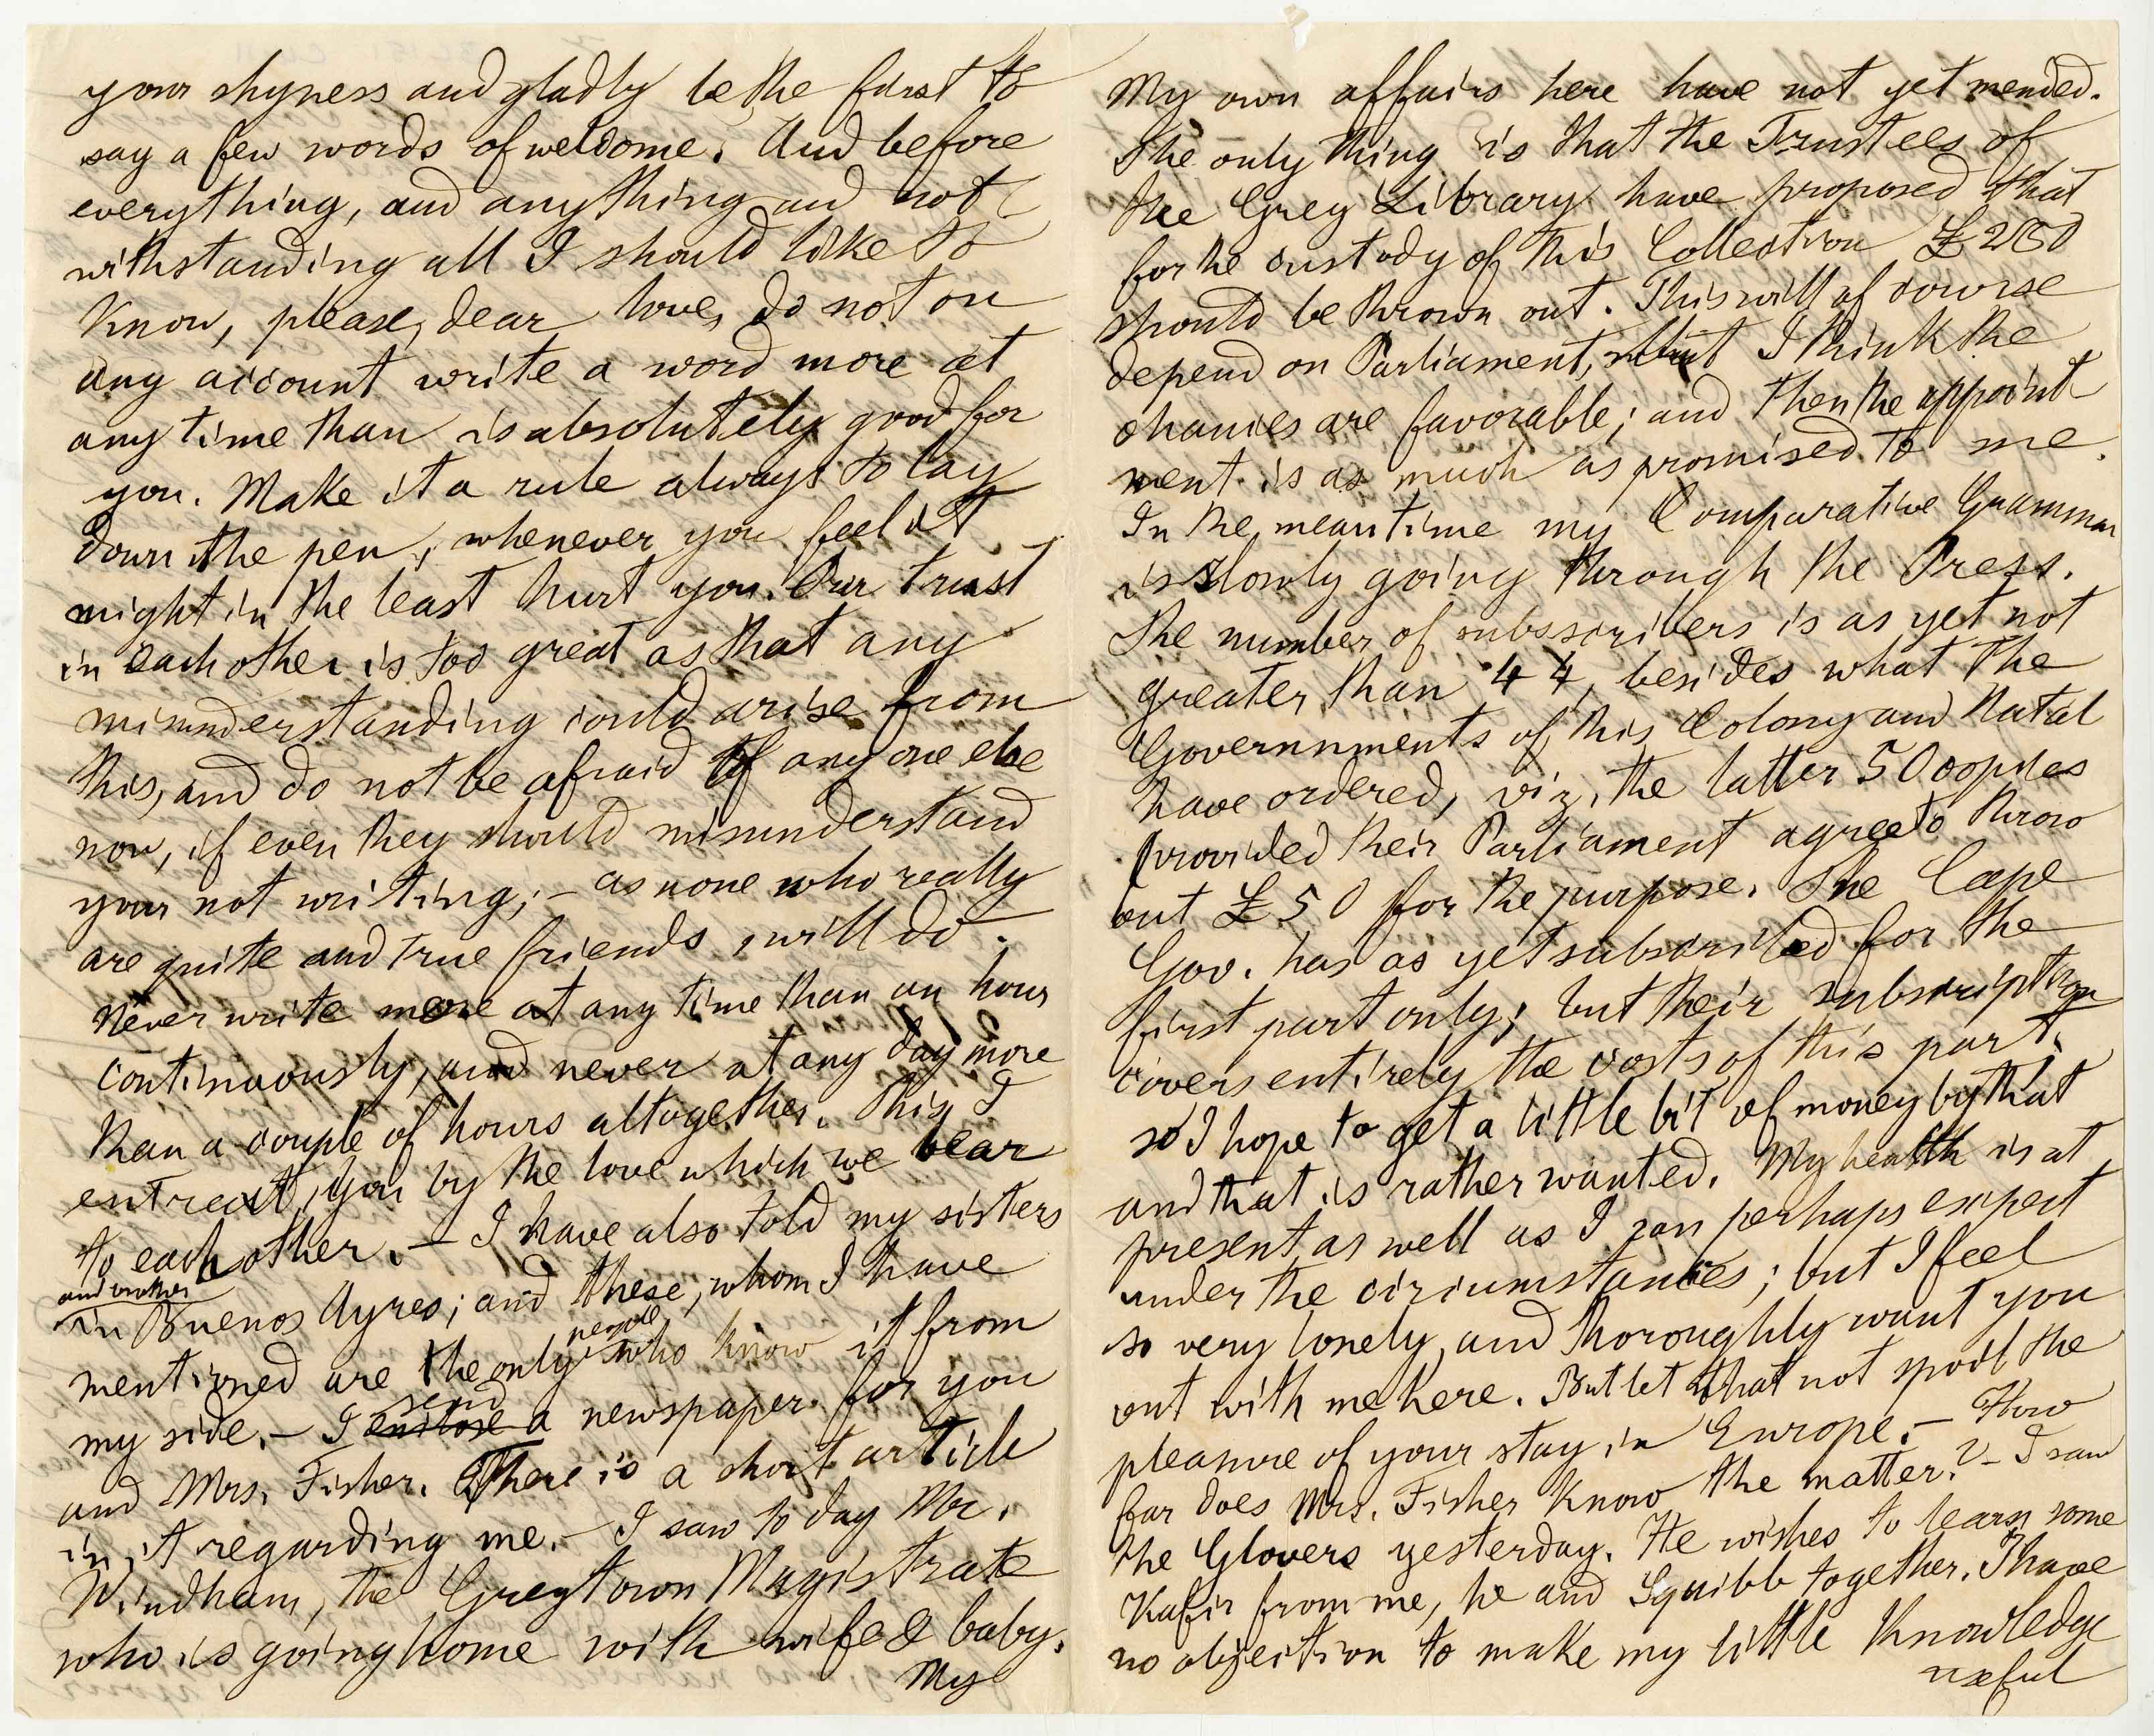 your shyness and gladly be the first to
say a few words of welcome. And before
everything, and anything and not
withstanding all I should like to
know, please, dear love, do not on
any account write a word more at
any time than is absolutely good for
you. Make it a rule always to lay
down the pen, whenever you feel it
might in the least hurt you. Our trust
in each other is too great as that any
misunderstanding could arise from
this, and do not be afraid of any one else
now, if even they should misunderstand
your not writing; – as none who really
are quite and true friends, will do.
Never write more at any time than an hour
continuously, and never at any day more
than a couple of hours altogether. This I
entreat you by the love which we bear
to each other. – I have also told my sisters
and brother
in Buenos Ayres; and these, whom I have
mentioned are the only people who know it from
my side. – I enclose send a newspaper for you
and Mrs. Fisher. There is a short article
in it regarding me. – I saw to day Mr.
Windham, the Greytown Magistrate
who is going home with wife & baby.
My
My own affairs here have not yet mended.
The only thing is that the Trustees of
the Grey Library have proposed that
for the custody of this Collection £250
should be thrown out. This will of course
depend on Parliament, but I think the
chances are favorable; and then the appoint
ment is as much as promised to me.
In the meantime my Comparative Grammar
is slowly going through the Press.
The number of subsscribers is as yet not
greater than 44, besides what the
Governnments of this Colony and Natal
have ordered, viz, the latter 50 copies
provided their Parliament agree to throw
out £50 for the purpose. The Cape
Gov. has as yet subscribed for the
first part only; but their subscription
covers entirely the costs of this part.
so I hope to get a little bit of money by that
and that is rather wanted. My health is at
present as well as I can perhaps expect
under the circumstances; but I feel
so very lonely, and thoroughly want you
out with me here. But let that not spoil the
pleasure of your stay in Europe. – How
far does Mrs. Fisher know the matter? – I saw
the Glovers yesterday. He wishes to learn some
Kafir from me, he and Squibb together. I have
no objection to make my little knowledge
useful